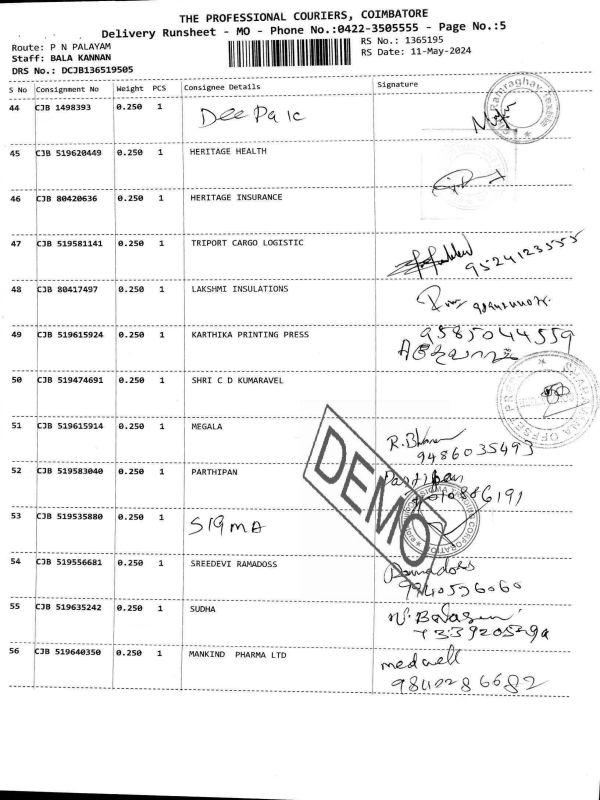 THE PROFESSIONAL COURIERS, COIMBATORE
Delivery Runsheet - MO - Phone No.:0422-3505555 - Page No.:5
Route: P N PALAYAM
RS No.: 1365195
Staff: BALA KANNAN
RS Date: 11-May-2024
DRS No.: DCJB136519505
S No Consignment No Weight PCS Consignee Details Signature
44 CJB 1498393 0.250 1 Deepak
45 CJB 519620449 0.250 1 HERITAGE HEALTH
46 CJB 80420636 0.250 1 HERITAGE INSURANCE
47 CJB 519581141 0.250 1 TRIPORT CARGO LOGISTIC
9524123555
48 CJB 80417497 0.250 1 LAKSHMI INSULATIONS
49 CJB 519615924 0.250 1 KARTHIKA PRINTING PRESS 9585044559
50 CJB 519474691 0.250 1 SHRI C D KUMARAVEL
51 CJB 519615914 0.250 1 MEGALA
9486035493
52 CJB 519583040 0.250 1 PARTHIPAN
53 CJB 519535880 0.250 1 SIGMA
54 CJB 519556681 0.250 1 SREEDEVI RAMADOSS Ramadoss
55 CJB 519635242 0.250 1 SUDHA
56 CJB 519640350 0.250 1 MANKIND PHARMA LTD medwell
DEMO